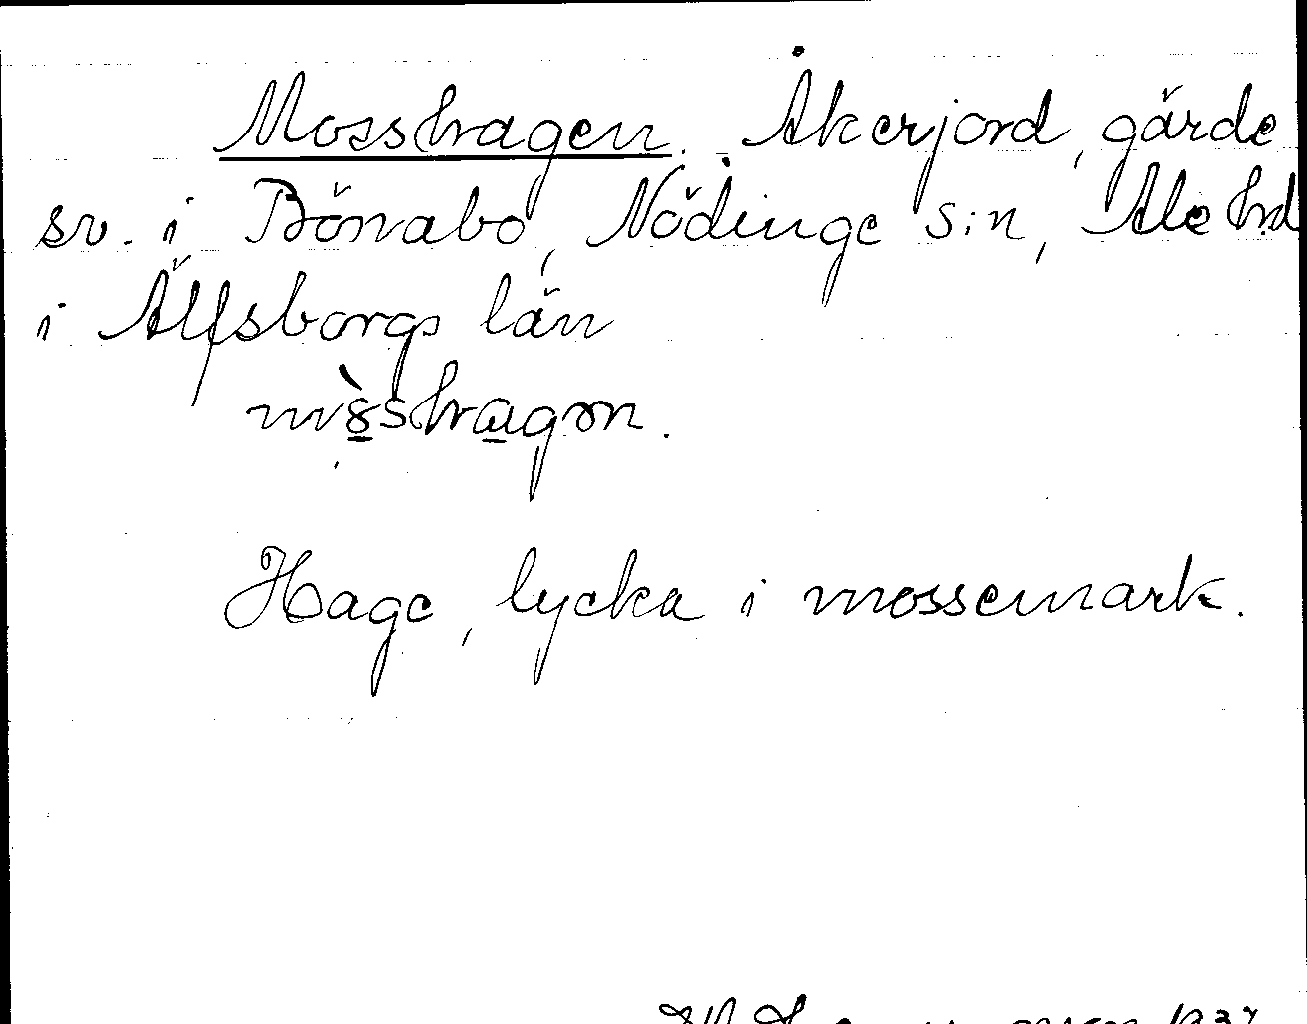 Mosshagen. Åkerjord, gärde
sv. i Bönabo, Nödinge s:n, Ale hd
i Älfsborgs län
hagən.
Hage, lycka i mossemark.